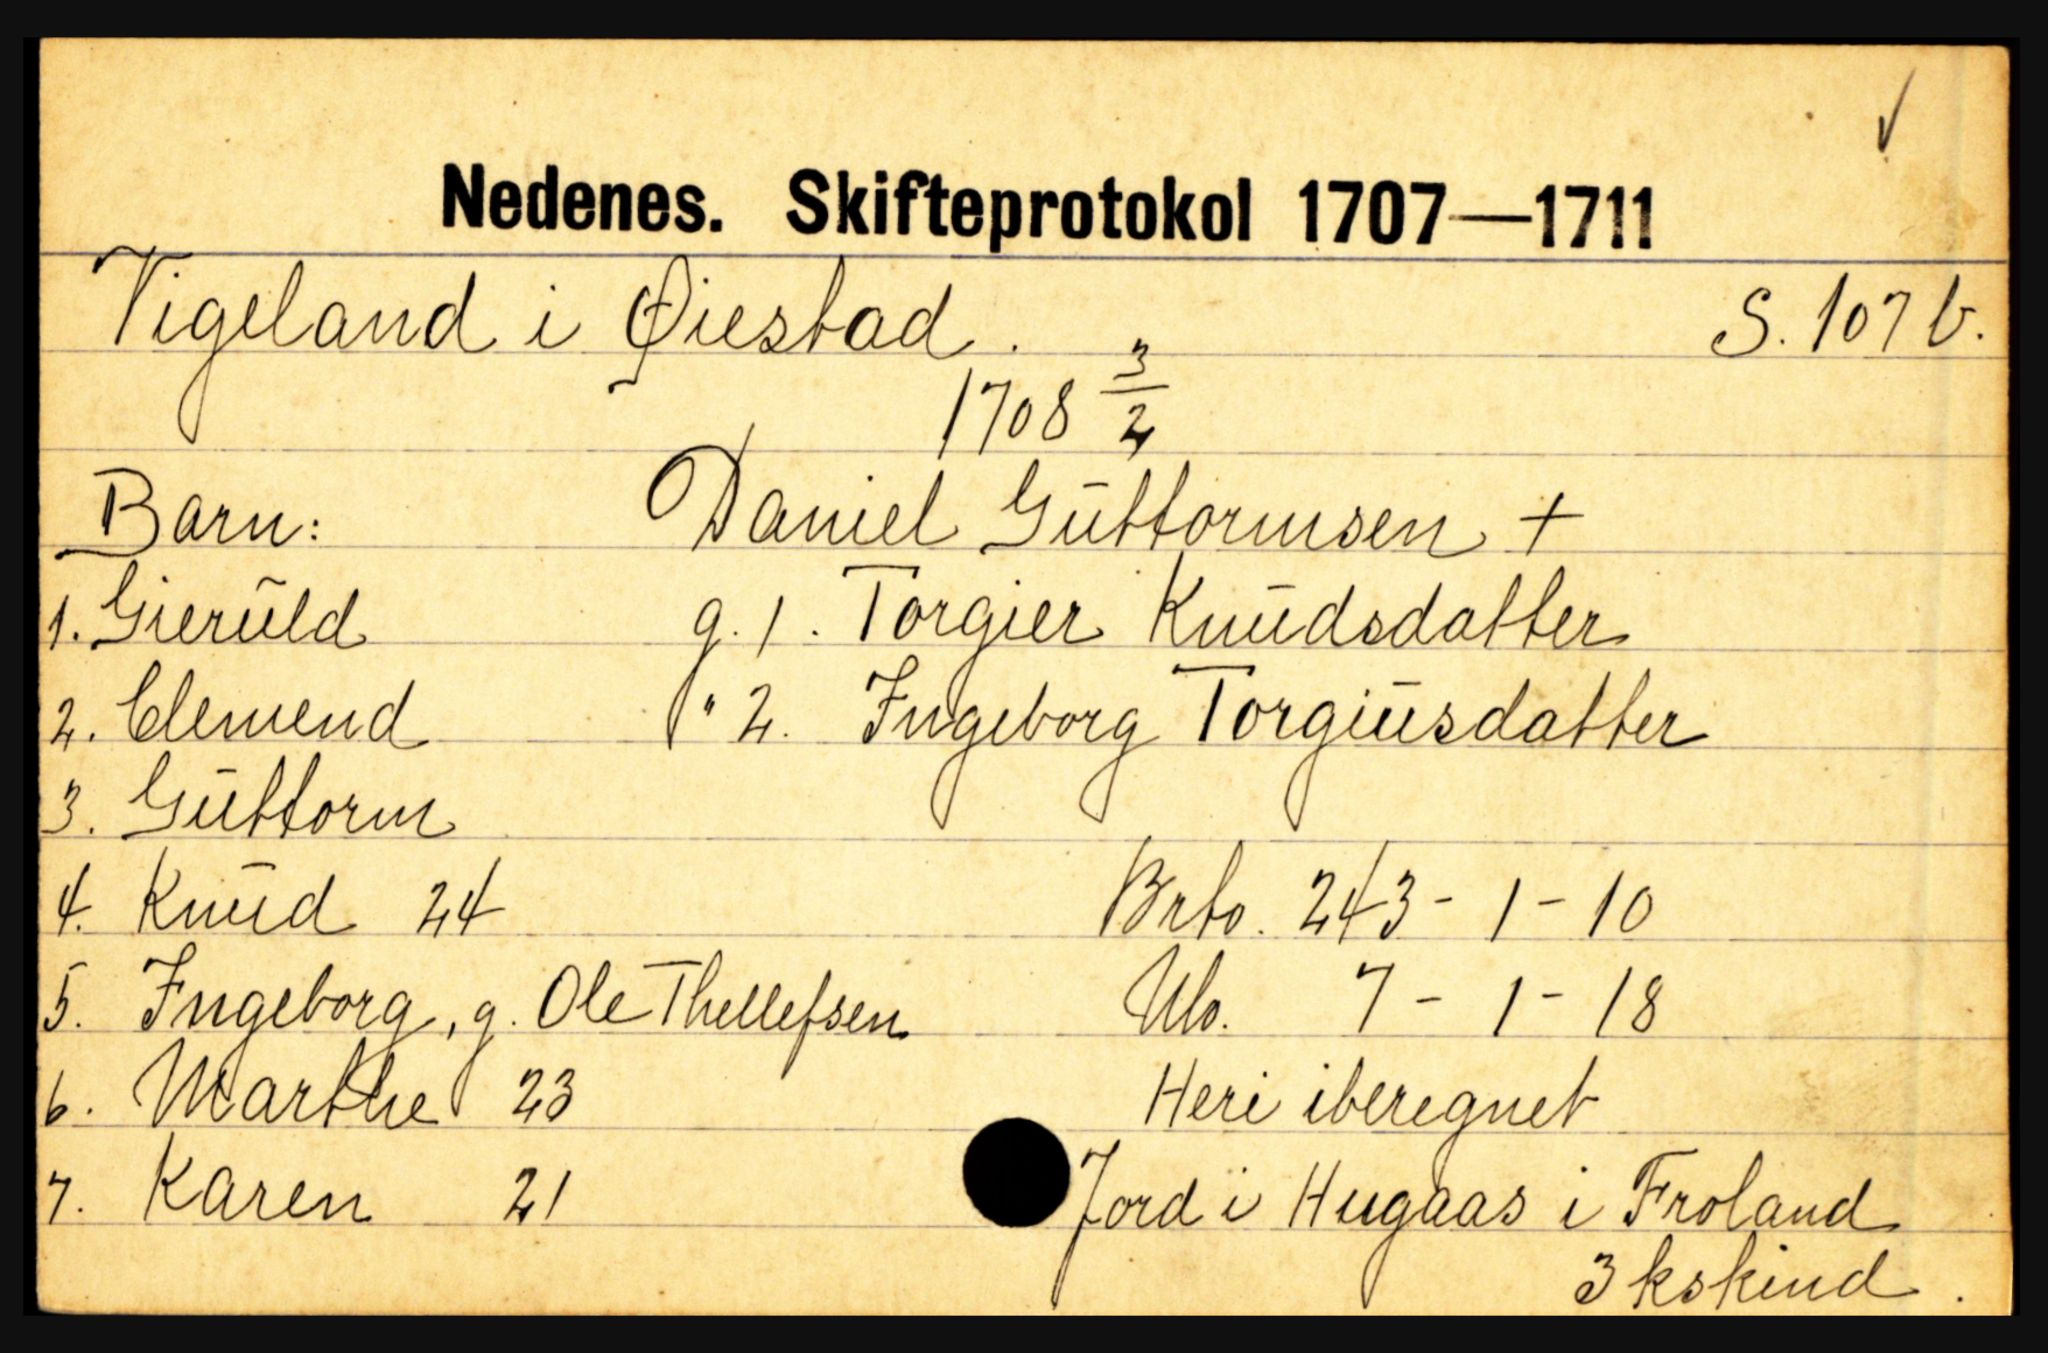 Nedenes. Skifteprotokol 1707—1711
Vigeland i Øiestad. S. 107 b.
1708 3/2
Barn: Daniel Guttormsen +
1. Gieruld g. 1. Torgier Knudsdatter
2. Clemend " 2. Ingeborg Torgiusdatter
3. Guttorm
4. Knud 24 Brto. 243 - 1 - 10
5. Ingeborg, g. Ole Thellefsen Nto. 7 - 1 - 18
6. Marthe 23 Heri iberegnet
7. Karen 21 Jord i Hugaas i Froland
3 kskind.